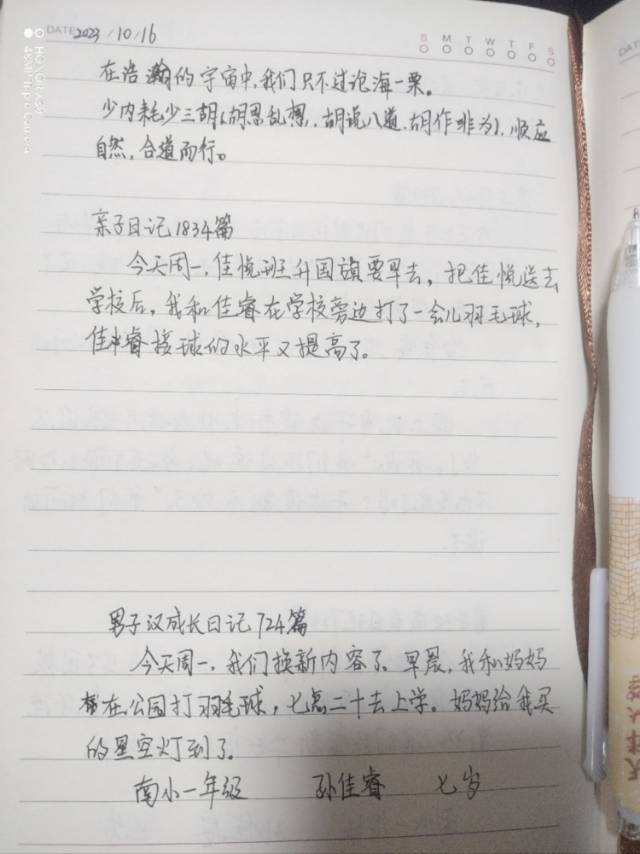 DATE 2023/10/16
S M T W T F S
在浩瀚的宇宙中,我们只不过沧海一粟。
少内耗少三胡(胡思乱想、胡说八道、胡作非为),顺应
自然,合道而行。
亲子日记1834篇
今天周一,佳悦班升国旗要早去,把佳悦送去
学校后,我和佳睿在学校旁边打了一会儿羽毛球,
佳睿接球的水平又提高了。
男子汉成长日记724篇
今天周一,我们换新内容了。早晨,我和妈妈
在公园打羽毛球,七点二十去上学。妈妈给我买
的星空灯到了。
南小一年级 孙佳睿 七岁